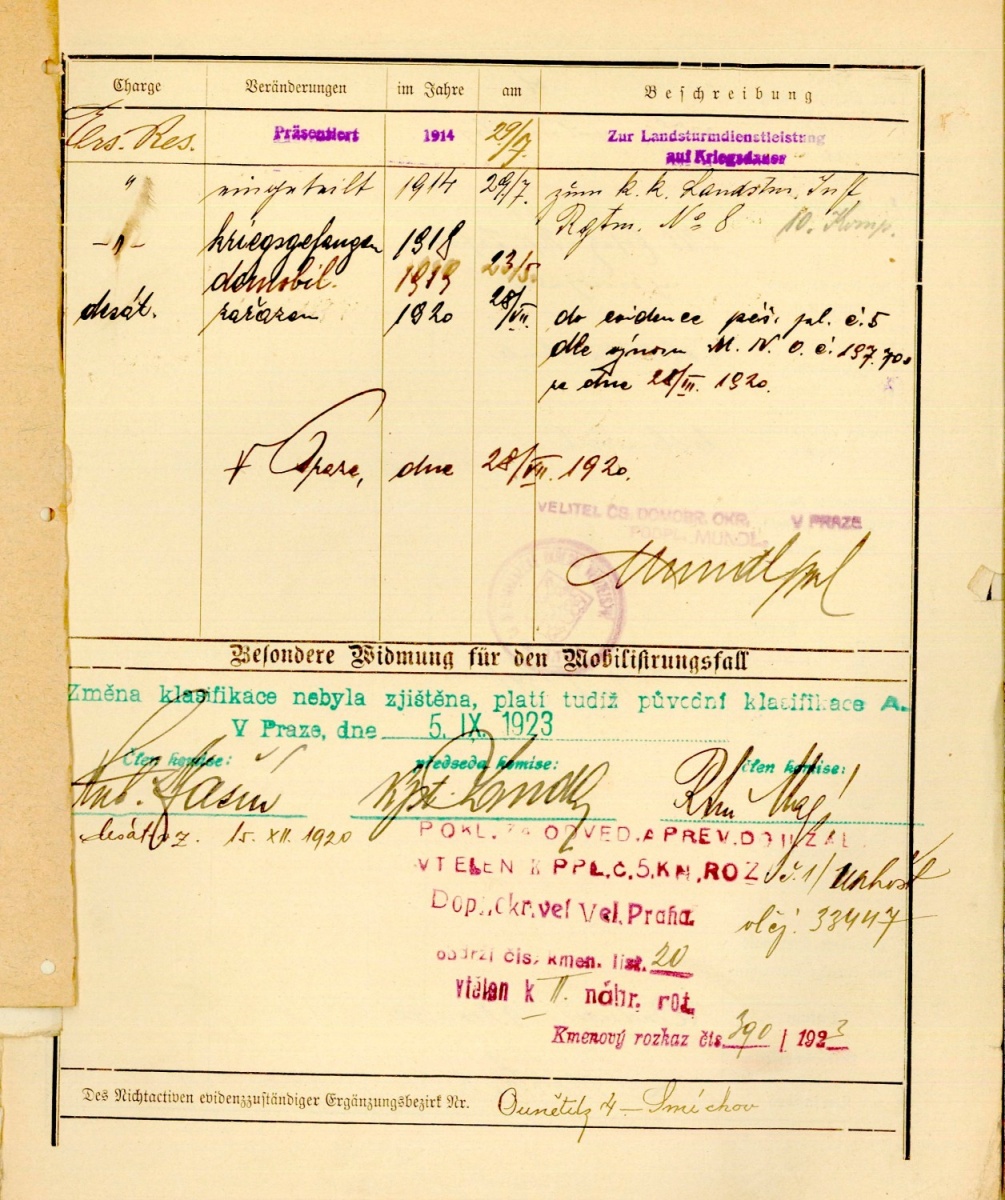 Charge Veränderungen im Jahre am Beschreibung
Ers. Res. Präsentiert 1914 29/7. Zur Landsturmdienstleistung
auf Kriegsdauer
" eingeteilt 1914 29/7. zum k. k. Landstm. Inft
Rgtm. No 8 10. Komp.
-"- kriegsgefangen 1918
demobil. 1919 23/5.
desát. zařazen 1920 28/VII. do evidence pěš. pl. č. 5
dle výnosu M. N. O. č. 197.700
ze dne 28/III. 1920.
V Praze, dne 28/VII. 1920.
VELITEL ČS. DOMOBR. OKR. V PRAZE
PODPL. MUNDL.
Mundl ppl
Besondere Widmung für den Mobilisirungsfall
Změna klasifikace nebyla zjištěna, platí tudíž původní klasifikace A.
V Praze, dne 5. IX. 1923
Člen komise: předseda komise: člen komise:
15. XII. 1920
POKL. ZA ODVED. A PREV. DO
VTĚLEN K PPL. Č. 5. KN. ROZ č. 1/
Dopl. okr. vel. Vel. Praha. 33447
obdrží čís. kmen. list. 20
vtělen k II. náhr. rot.
Kmenový rozkaz čís. 390 / 1923
Des Nichtactiven evidenzzuständiger Ergänzungsbezirk Nr. Ounětitz 4 – Smíchov